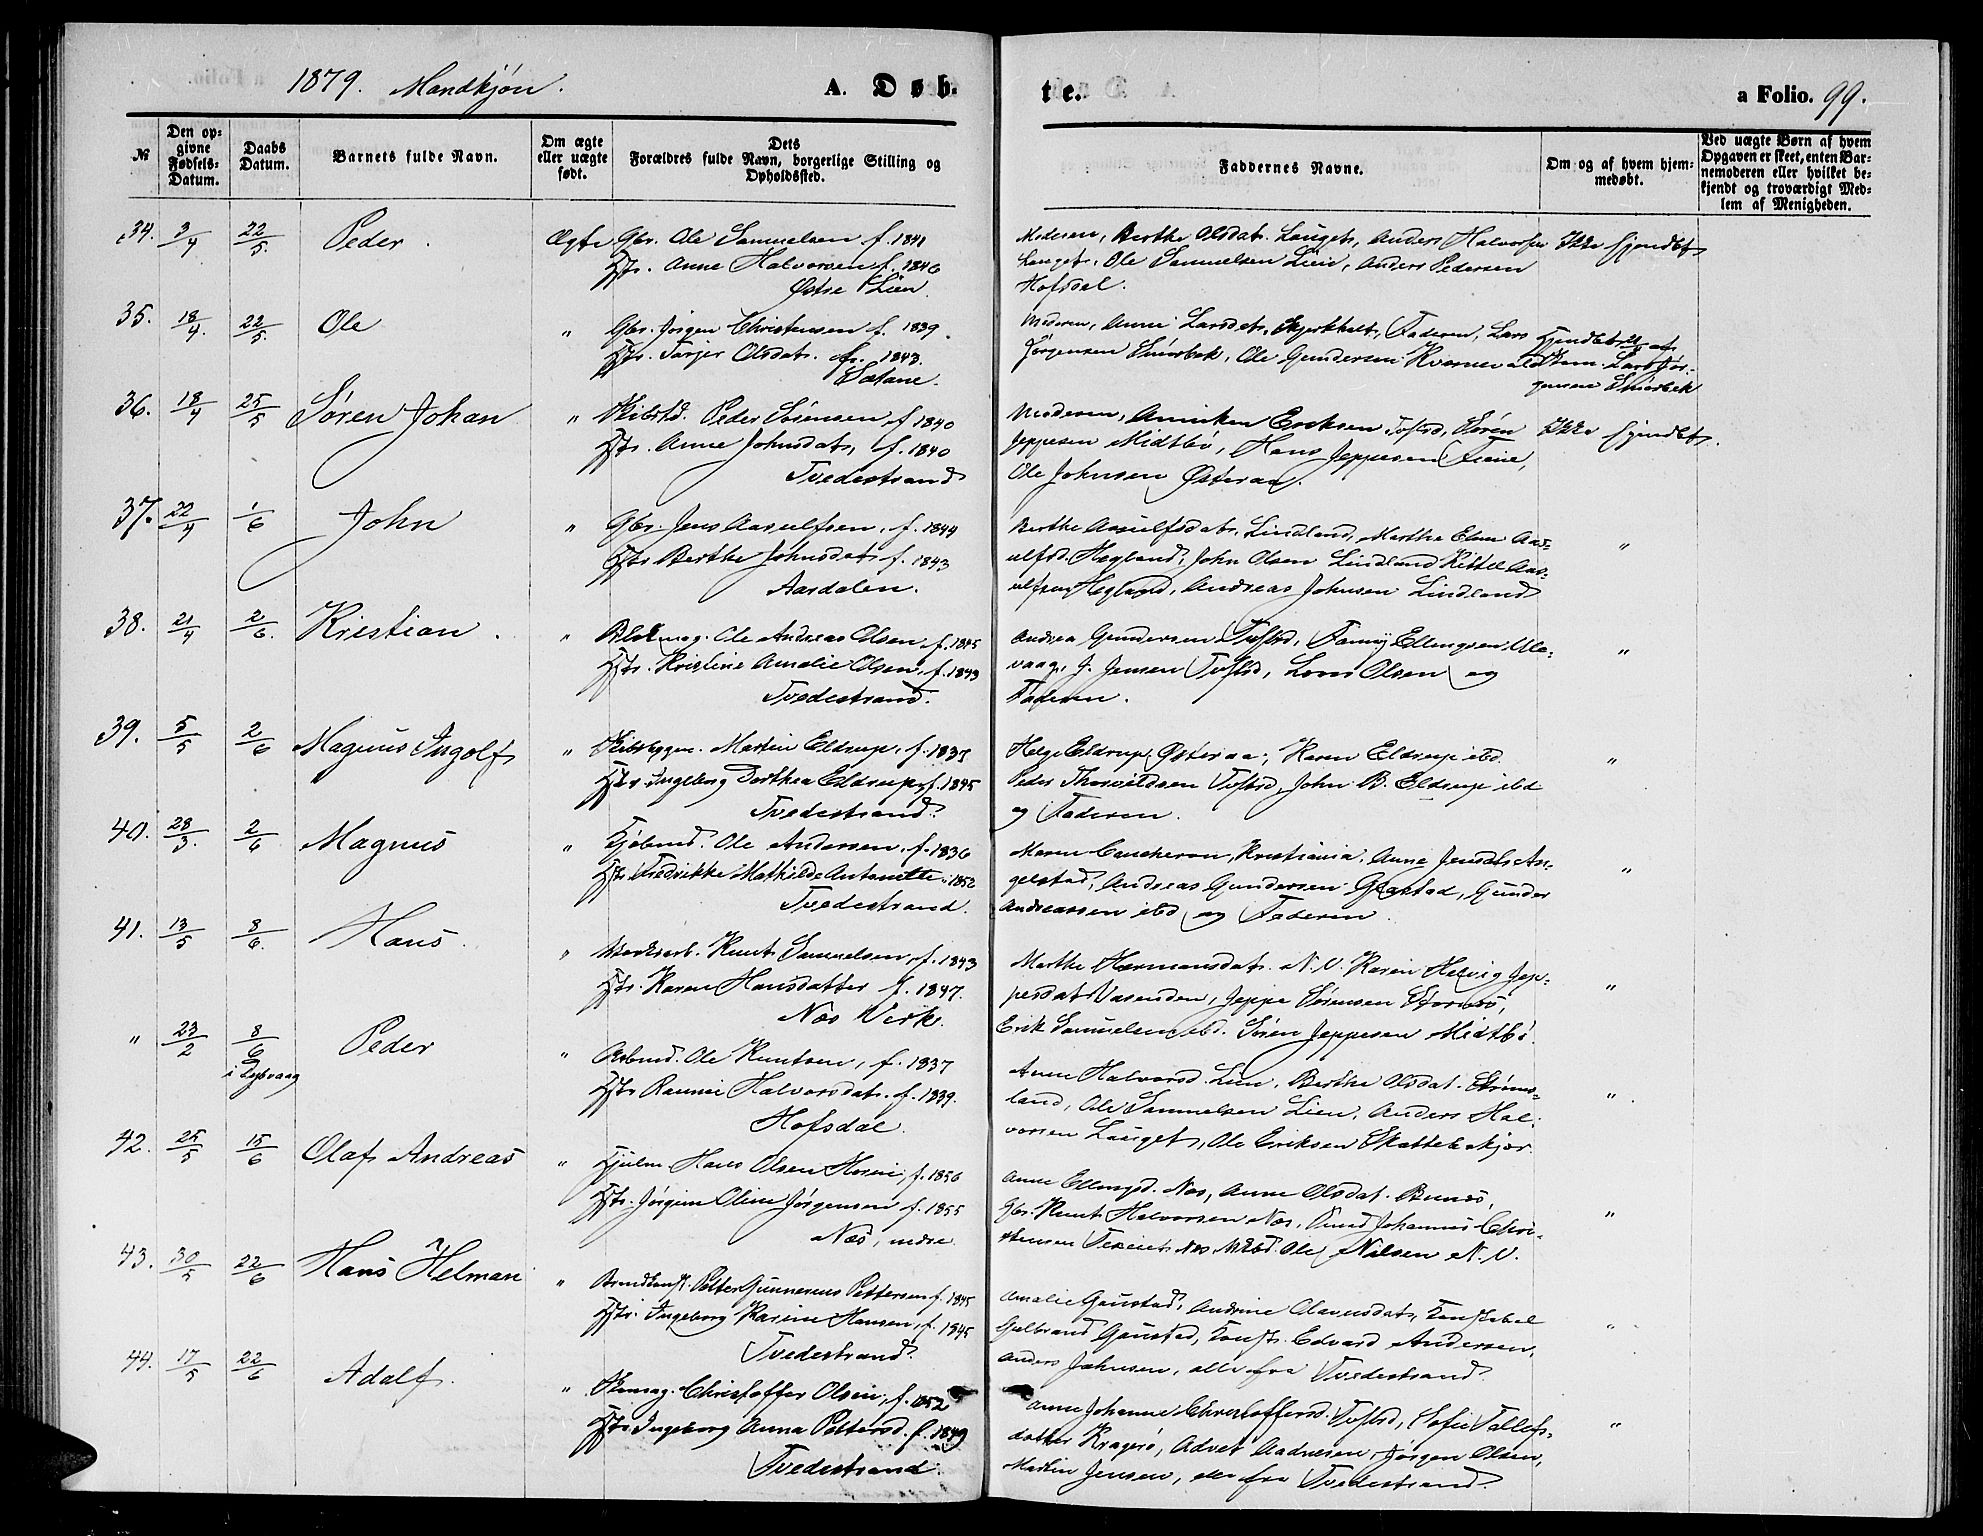 1879. Mandkjøn. A. Døb-
te.
a Folio. 99.
№
Den op-
givne
Fødsels-
Datum.
Daabs
Datum.
Barnets fulde Navn.
Om ægte
eller uægte
født.
Dets
Forældres fulde Navn, borgerlige Stilling og
Opholdssted.
Faddernes Navne.
Om og af hvem hjem-
medøbt.
Ved uægte Børn af hvem
Opgaven er skeet, enten Bar-
nemoderen eller hvilket be-
kjendt og troværdigt Med-
lem af Menigheden.
34. 3/4 22/5 Peder. Ægte Gbr. Ole Samuelsen f. 1841
Hst. Anne Halvorsen f. 1846
Østre Lien.
Moderen, Berthe Olsdat. Lauget, Anders Halvorsen
Lauget, Ole Samuelsen Lien, Anders Pedersen
Hofsdal.
Ikke hjemdbt.
35. 18/4 22/5 Ole " Gbr. Jörgen Christensen f. 1839.
Hst. Tarjer Olsdat. f. 1843.
Sætane.
Moderen, Anne Larsdat. Skjerkholt, Faderen, Lars
Jörgensen Smörbek, Ole Gundersen Kværnevold
Hjemdöbt af
Kem. Lars Jör-
gensen Smörbek
36. 18/4 25/5 Søren Johan " Skibstd. Peder Sörensen f. 1840
Hst. Anne Johnsdat. f. 1840
Tvedestrand
Moderen, Anniken Eriksen Tvstrd, Sören
Jeppesen Midtbö, Hans Jeppesen Fiane,
Ole Johnsen Østeraa.
Ikke hjemdbt.
37. 22/4 1/6 John " Gbr. Jens Aasulfsen, f. 1844
Hst Berthe Johnsdat. f. 1843
Aasdalen.
Berthe Aasulfsdat. Lindland, Marthe Elen Aas-
ulfsd. Hegland, John Olsen Lindland Kittel Aas-
ulfsen Hegland, Andreas Johnsen Lindland
"
38. 21/4 2/6 Kristian. " Blokmag. Ole Andreas Olsen, f. 1845
Hst. Kristine Amalie Olsen, f. 1843
Tvedestrand.
Andrea Gundersen Tvstrd, Fanny Ellingsen Ule-
vaag, J. Jensen Tvstrd, Lovis Olsen og
Faderen.
"
39. 5/5 2/6 Magnus Ingolf " Skibsbygm. Martin Eldrup, f. 1835
Hst Ingeborg Dorthea Eldrup, f. 1845
Tvedestrand.
Helge Eldrup Østeraa, Karen Eldrup ibd
Peder Thorvaldsen Tvstrd, John B. Eldrup ibd
og Faderen.
"
40. 28/3. 2/6 Magnus " Kjöbmd. Ole Andersen, f. 1836
Hst. Fredrikke Mathilde Antonette 1852
Tvedestrand.
Maren Kristiania, Anne Jensdat An-
gelstad, Andreas Gundersen Gjerstad, Gunder
Andreassen ibd og Faderen.
"
41. 13/5 8/6. Hans. " Værksarb. Knut Samuelsen, f. 1843
Hst. Karen Hansdatter f. 1847.
Næs Verk.
Marthe Hermansdat. N. V. Karen Helvig Jep-
pesdat. Vasenden, Jeppe Sörensen
Erik Samuelsen ibd. Sören Jeppesen Midtbö.
"
" 23/2 8/6 Peder " Arbmd. Ole Knutsen, f. 1837
i Dybvaag
Hst Halvorsdat. f. 1839.
Hofsdal.
Anne Halvorsd. Lien, Berthe Olsdat. Strøms-
land, Ole Samuelsen Lien, Anders Hal-
vorsen Lauget, Ole Eriksen
".
42. 25/5 15/6 Olaf Andreas " Hans Olsen f. 1856
Hst. Jörgine Oline Jörgensen f. 1855
Næs, nedre
Anne Ellingsd. Næs, Anne Olsdat.
Gbr. Knut Halvorsen Næs, Johannes Chri-
stensen Ole Nilsen N. V.
"
43. 30/5 22/6 Hans Helman " Petter Gunnerius Pettersen f. 1845
Hst. Ingeborg Karine Hansen, f. 1845
Tvedestrand.
Amalie Gaustad, Andrine Olavesdat. Konstabel
Gulbrand Gaustad, Konst. Edvard Andersen,
Anders Johnsen, alle fra Tvedestrand
"
44. 17/5 22/6 Adolf. " Skomag. Christoffer Olsen, f. 1852
Hst Ingeborg Anna Pettersd. f. 1849
Tvedestrand.
Anne Johanne Christoffersd. Tvstrd, Sofie Tallefs-
datter Kragerö, Jörgen Olsen,
Martin Jensen, alle fra Tvedestrand.
"